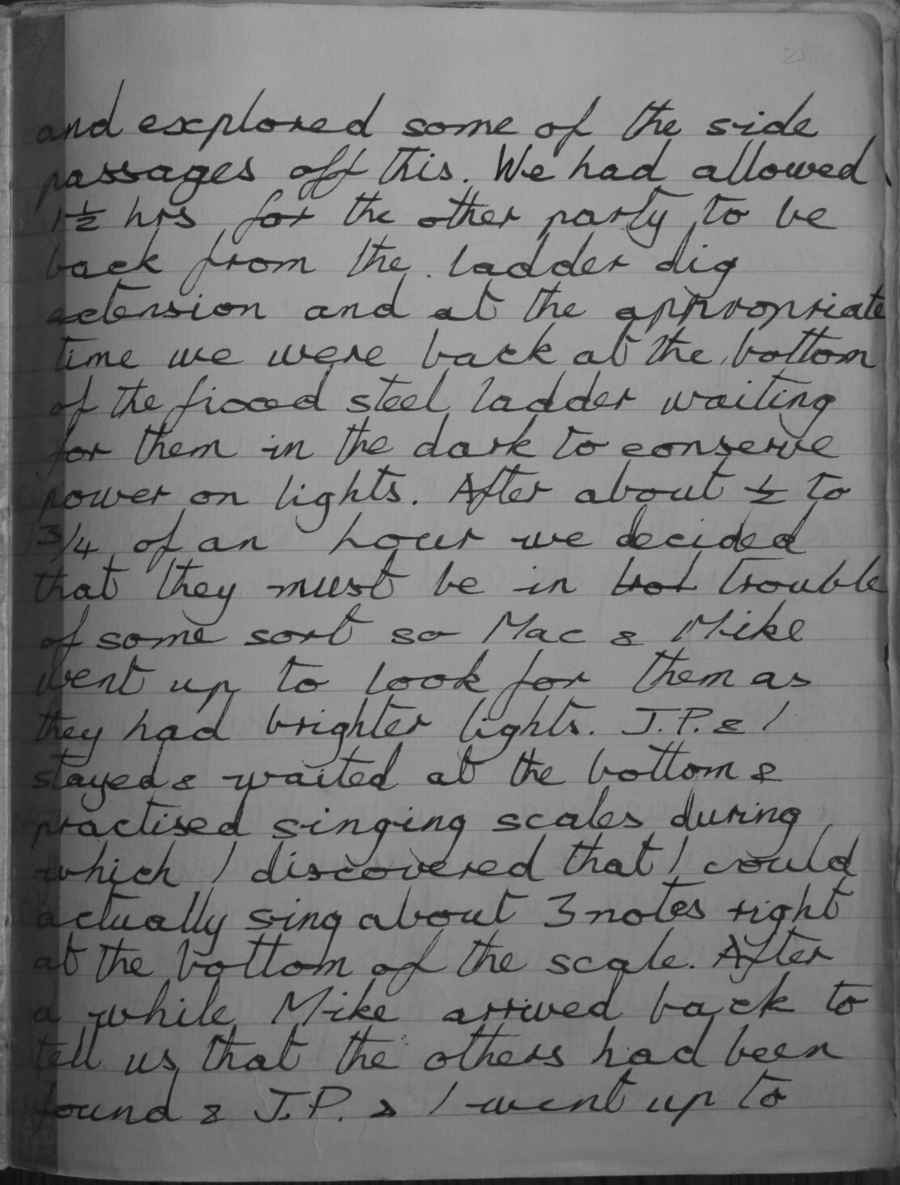 and explored some of the side
passages off this. We had allowed
1½ hrs for the other party to be
back from the ladder dig
extension and at the appropriate
time we were back at the bottom
of the fixed steel ladder waiting
for them in the dark to conserve
power on lights. After about ½ to
3/4 of an hour we decided
that they must be in trouble
of some sort so Mac & Mike
went up to look for them as
they had brighter lights. J.P. & I
stayed & waited at the bottom &
practised singing scales during
which I discovered that I could
actually sing about 3 notes right
at the bottom of the scale. After
a while Mike arrived back to
tell us that the others had been
found & J.P. & I went up to